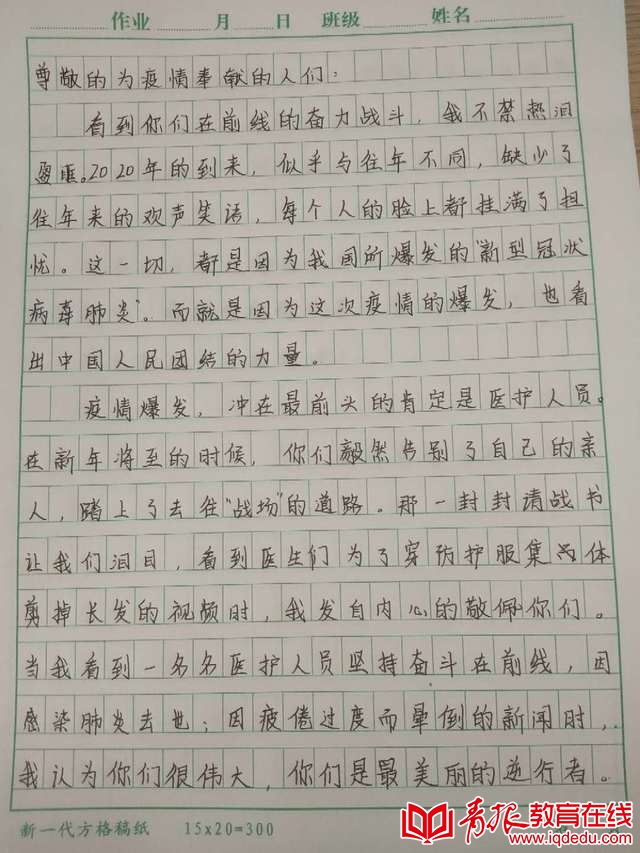 作业 月 日 班级 姓名
尊敬的为疫情奉献的人们：
看到你们在前线的奋力战斗，我不禁热泪
盈眶。2020年的到来，似乎与往年不同，缺少了
往年来的欢声笑语，每个人的脸上都挂满了担
忧。这一切，都是因为我国所爆发的"新型冠状
病毒肺炎"。而就是因为这次疫情的爆发，也看
出中国人民团结的力量。
疫情爆发，冲在最前头的肯定是医护人员。
在新年将至的时候，你们毅然告别了自己的亲
人，踏上了去往"战场"的道路。那一封封请战书
让我们泪目，看到医生们为了穿防护服集体
剪掉长发的视频时，我发自内心的敬佩你们。
当我看到一名名医护人员坚持奋斗在前线，因
感染肺炎去世；因疲倦过度而晕倒的新闻时，
我认为你们很伟大，你们是最美丽的逆行者。
新一代方格稿纸 15x20=300
青报教育在线
www.iqdedu.com